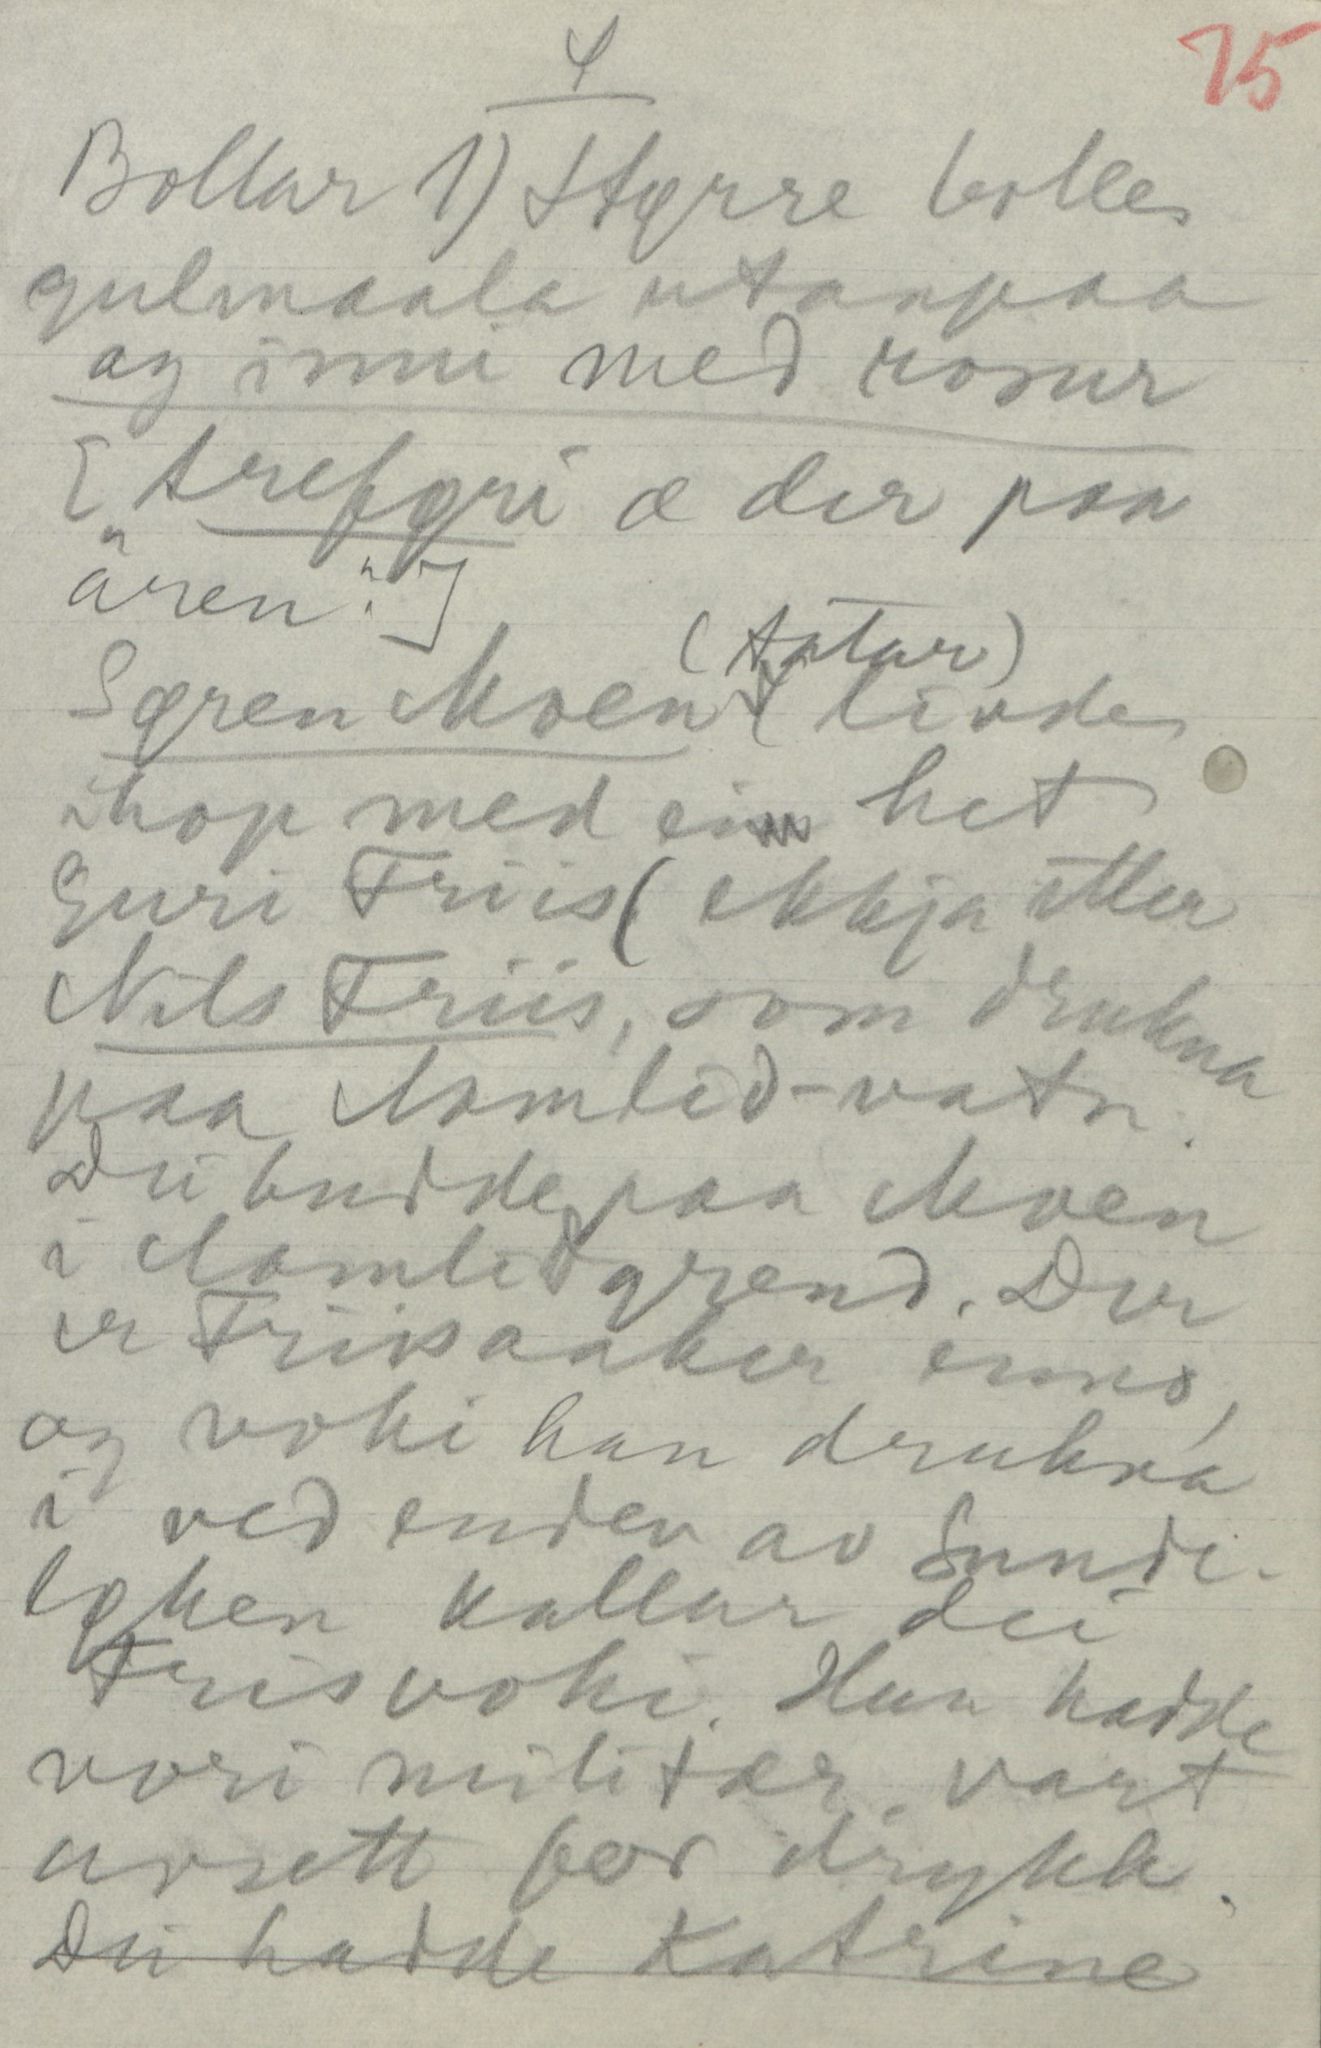 4
75
Bollar 1) Større bolle
gulmaala utanpaa
og inni med rosur
["treføri æ der paa
åren".]
(tatar)
Søren Moen livde
ihop med ei het
Guri Friis (ekkja etter
Nils Friis, som drukna
paa Aamlid-vatn.
Dei budde paa Moen
i Aamlidgrend. Der
er Friisaaker enno,
og voki han drukna
i ved enden av Sunde-
løken kallar dei
Frisvoki. Han hadde
vori militær, vart
avsett for drykk.
Dei hadde Katrine